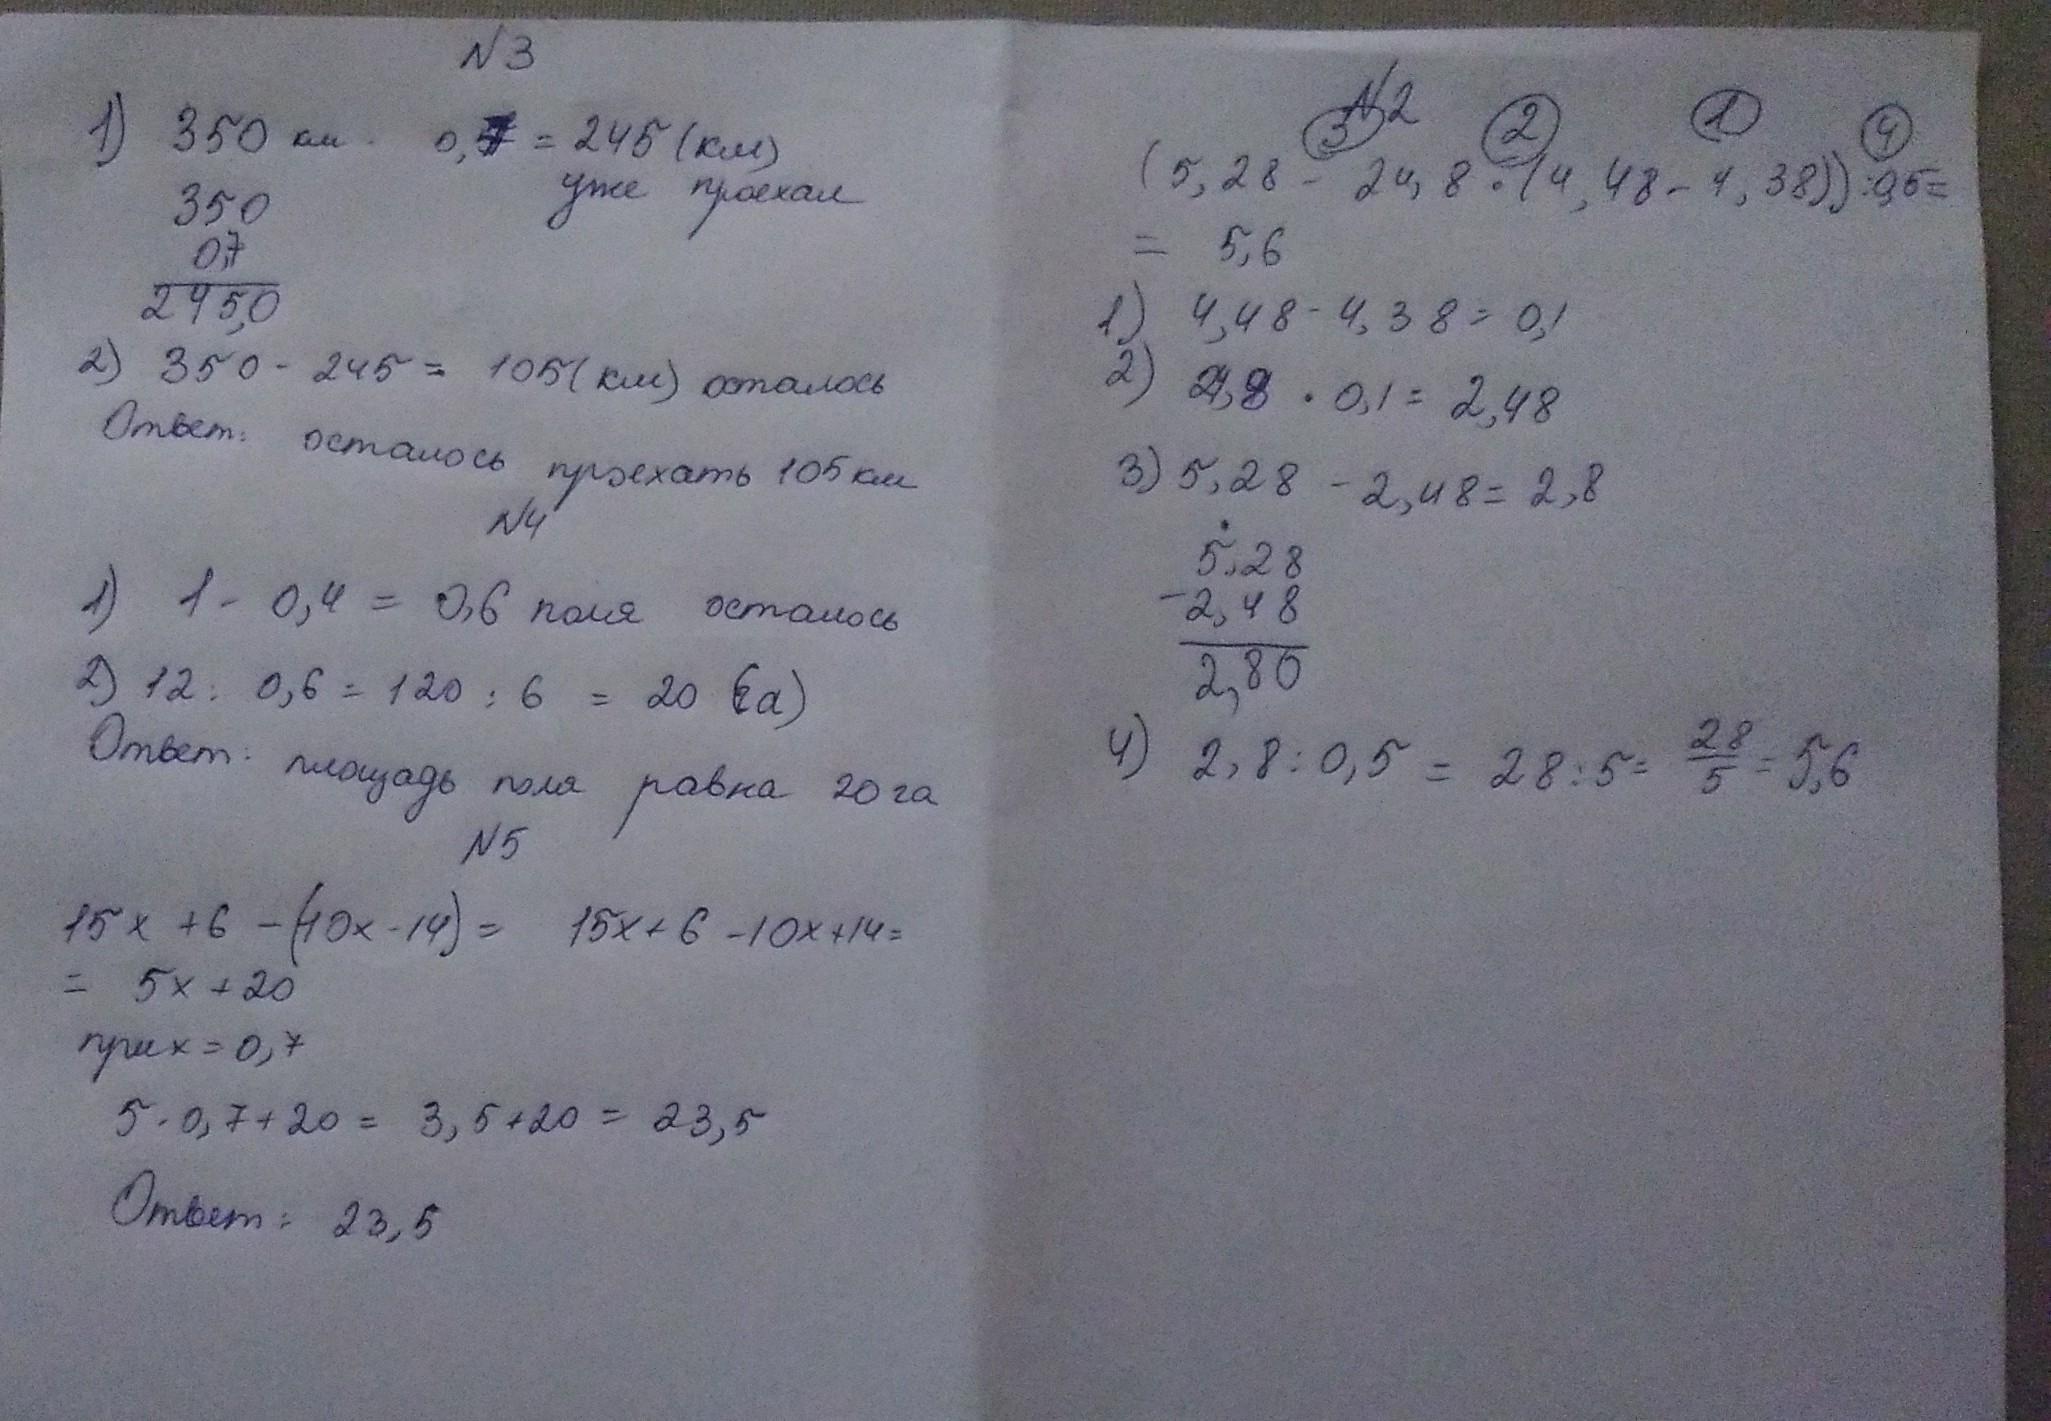 N3
1) 350 км · 0,7 = 245 (км)
уже проехал
350
0,7
245,0
2) 350 - 245 = 105 (км) осталось
Ответ: осталось проехать 105 км
N4
1) 1 - 0,4 = 0,6 поля осталось
2) 12 : 0,6 = 120 : 6 = 20 (га)
Ответ: площадь поля равна 20 га
N5
15x + 6 - (10x - 14) = 15x + 6 - 10x + 14 =
= 5x + 20
при x = 0,7
5 · 0,7 + 20 = 3,5 + 20 = 23,5
Ответ: 23,5
N2
3 2 1 4
(5,28 - 24,8 · (4,48 - 4,38)) : 0,5 =
= 5,6
1) 4,48 - 4,38 = 0,1
2) · 0,1 = 2,48
3) 5,28 - 2,48 = 2,8
5,28
- 2,48
2,80
4) 2,8 : 0,5 = 28 : 5 = 28/5 = 5,6